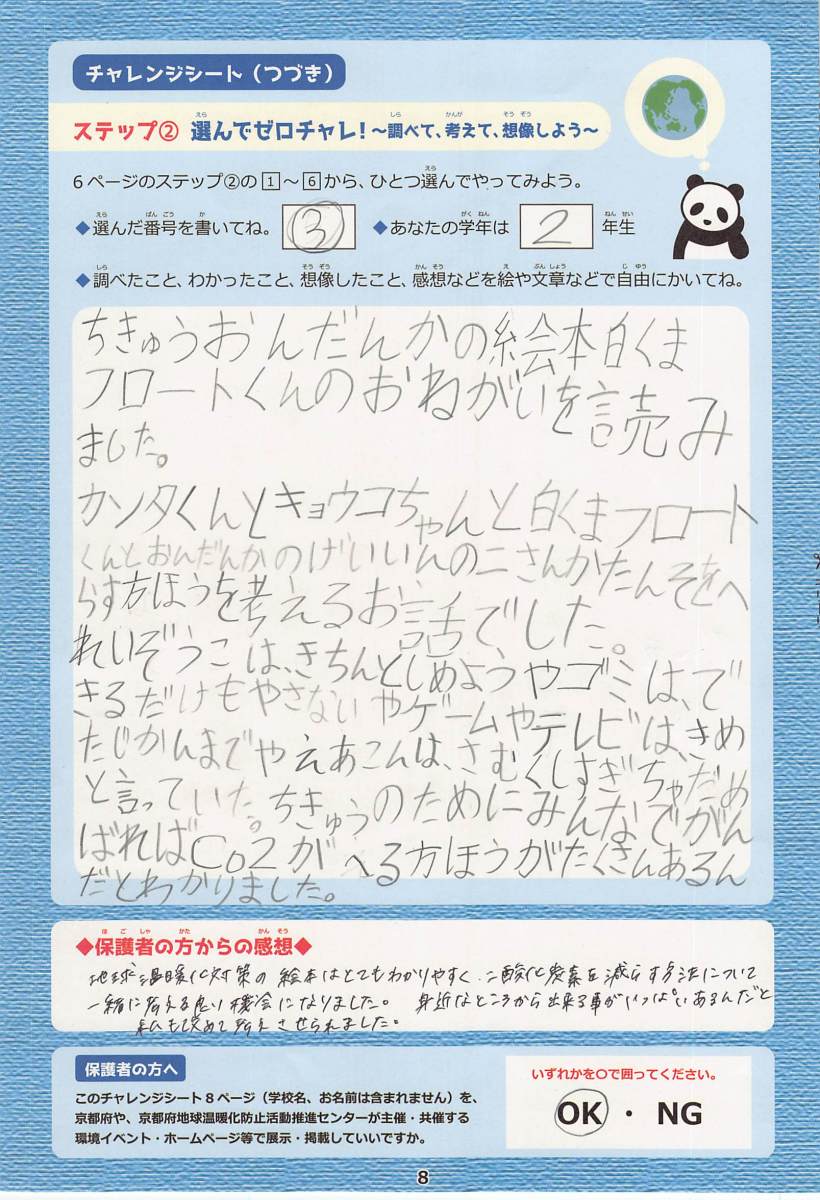 チャレンジシート（つづき）
ステップ② 選んでゼロチャレ！～調べて、考えて、想像しよう～
6ページのステップ②の1～6から、ひとつ選んでやってみよう。
◆選んだ番号を書いてね。 ③ ◆あなたの学年は 2 年生
◆調べたこと、わかったこと、想像したこと、感想などを絵や文章などで自由にかいてね。
ちきゅうおんだんかの絵本白くま
フロートくんのおねがいを読み
ました。
カンタくんとキョウコちゃんと白くまフロート
くんとおんだんかのげいいんの二さんかたんそをへ
らす方ほうを考えるお話でした。
れいぞうこは、きちんとしめようやゴミは、で
きるだけもやさないやゲームやテレビは、きめ
たじかんまでやえあこんは、さむくしすぎちゃだめ
と言っていた。ちきゅうのためにみんなでがん
ばればCo2がへる方ほうがたくさんあるん
だとわかりました。
◆保護者の方からの感想◆
地球温暖化対策の絵本はとてもわかりやすく、二酸化炭素を減らす方法について
一緒に考える良い機会になりました。 身近なところから出来る事がいっぱいあるんだと
私も改めて考えさせられました。
保護者の方へ
このチャレンジシート8ページ（学校名、お名前は含まれません）を、
京都府や、京都府地球温暖化防止活動推進センターが主催・共催する
環境イベント・ホームページ等で展示・掲載していいですか。
いずれかを〇で囲ってください。
OK ・ NG
8